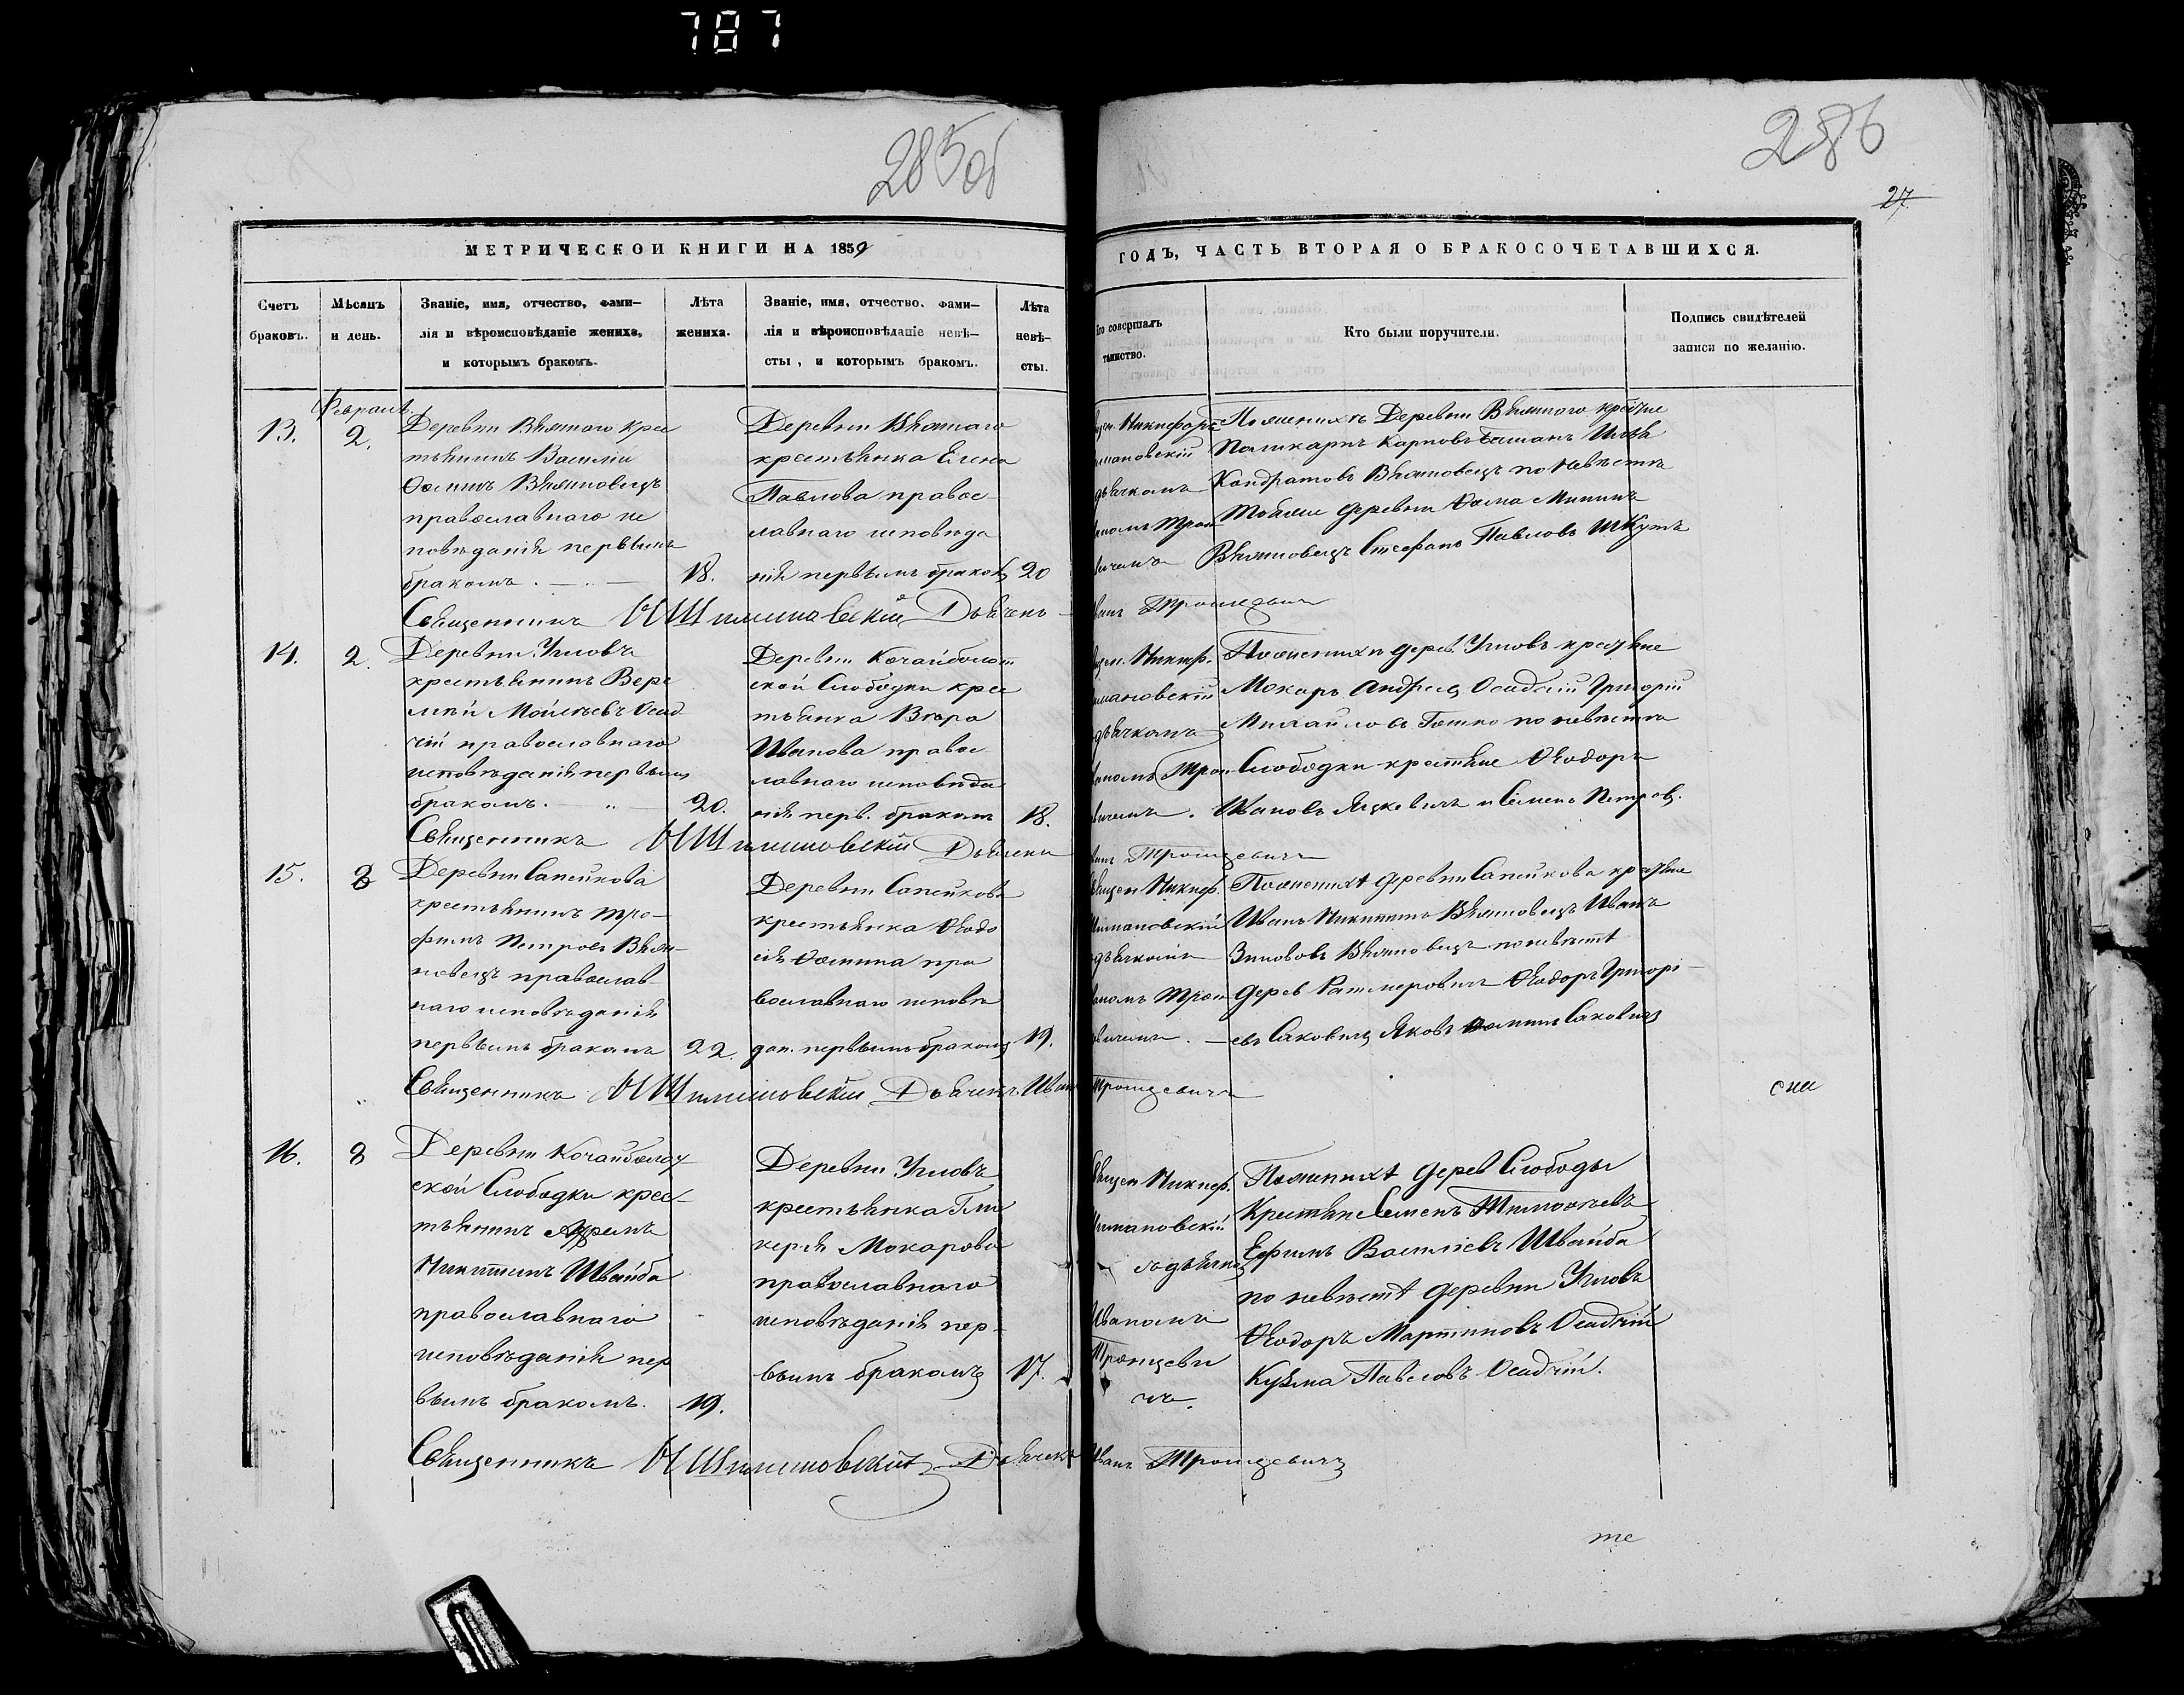 787
285об
286
27
МЕТРИЧЕСКОЙ КНИГИ НА 1859
ГОДЪ, ЧАСТЬ ВТОРАЯ О БРАКОСОЧЕТАВШИХСЯ.
Счетъ
браковъ.
Мѣсяцъ
и день.
Званіе, имя, отчество, фами–
лія и вѣроисповѣданіе жениха,
и которымъ бракомъ.
Лѣта
жениха.
Званіе, имя, отчество, фами–
лія и вѣроисповѣданіе невѣ–
сты, и которымъ бракомъ.
Лѣта
невѣ–
сты.
Кто совершалъ
таинство.
Кто были поручители.
Подпись свидѣтелей
записи по желанію.
Февраль
13.
2.
Деревни Вьятнаго крес
тьянинъ Василій
Ѳоминъ Вьянновецъ
православнаго ис
повѣданія первымъ
бракомъ.
18.
Деревни Вьятнаго
крестьянка Елена
Павлова правос
лавнаго исповѣда
нія первымъ бракомъ
20
Никифоръ
Деревни
Карповъ
Кондратовъ Вьянновецъ по невѣстѣ
тойже деревни Ѳома Мининъ
Вьянновецъ Стефанъ Павловъ Шкутъ
Священникъ Н Шимановскій Дьячекъ
Иванъ Троицевичъ
14.
2.
Деревни Угловъ
крестьянинъ
Мойсѣевъ Осад
чій православнаго
исповѣданія первымъ
бракомъ.
20.
Деревни Качайболот
ской Слободки крес
тьянка Вѣра
Иванова правос
лавнаго исповѣда
нія перв. бракомъ
18.
Никиф.
По женихѣ дерев. Угловъ крестьяне
Мокаръ Андреевъ Осадчій Григорій
Михайловъ по невѣстѣ
Слободки крестьяне Ѳеодоръ
Ивановъ Яцкевичъ и Семенъ Петров.
Священникъ Н Шимановскій Дьячекъ
Иванъ Троицевичъ
15.
8
Деревни Сапейкова
крестьянинъ Тро–
фимъ Петровъ Вьян–
новецъ православ–
наго исповѣданія
первымъ бракомъ
22.
Деревни Сапейкова
крестьянка Ѳеодо
сія Ѳомина пра
вославнаго исповѣ
дан. первымъ бракомъ
19.
Священ Никиф.
Шимановскій
По женихѣ деревни Сапейкова крестьяне
Иванъ Никитинъ Вьянновецъ Иванъ
Зинововъ Вьянновецъ по невѣстѣ
дерев Ратмеровичъ Ѳеодоръ Григорі–
евъ Саковичъ Яковъ Ѳоминъ Саковичъ
Священникъ Н Шимановскій Дьячекъ Иванъ
Троицевичъ
сии
16.
8
Деревни Качайболот
ской Слободки крес–
тьянинъ
Никитинъ Швайба
православнаго
исповѣданія пер
вымъ бракомъ.
19.
Деревни Угловъ
крестьянка Гли
керія Мокарова
православнаго
исповѣданія пер–
вымъ бракомъ
17.
Священ Никиф.
Шимановскій
съ дьячкомъ
Иваномъ
Троицеви
чъ.
По женихѣ дерев Слободы
Крестьяне Семенъ Тимоѳеевъ
Ефимъ Василіевъ Швайба
по невѣстѣ деревни Угловъ
Ѳеодоръ Мартиновъ Осадчій
Кузма Павловъ Осадчій.
Священникъ Н Шимановскій Дьячекъ
Иванъ Троицевичъ
те